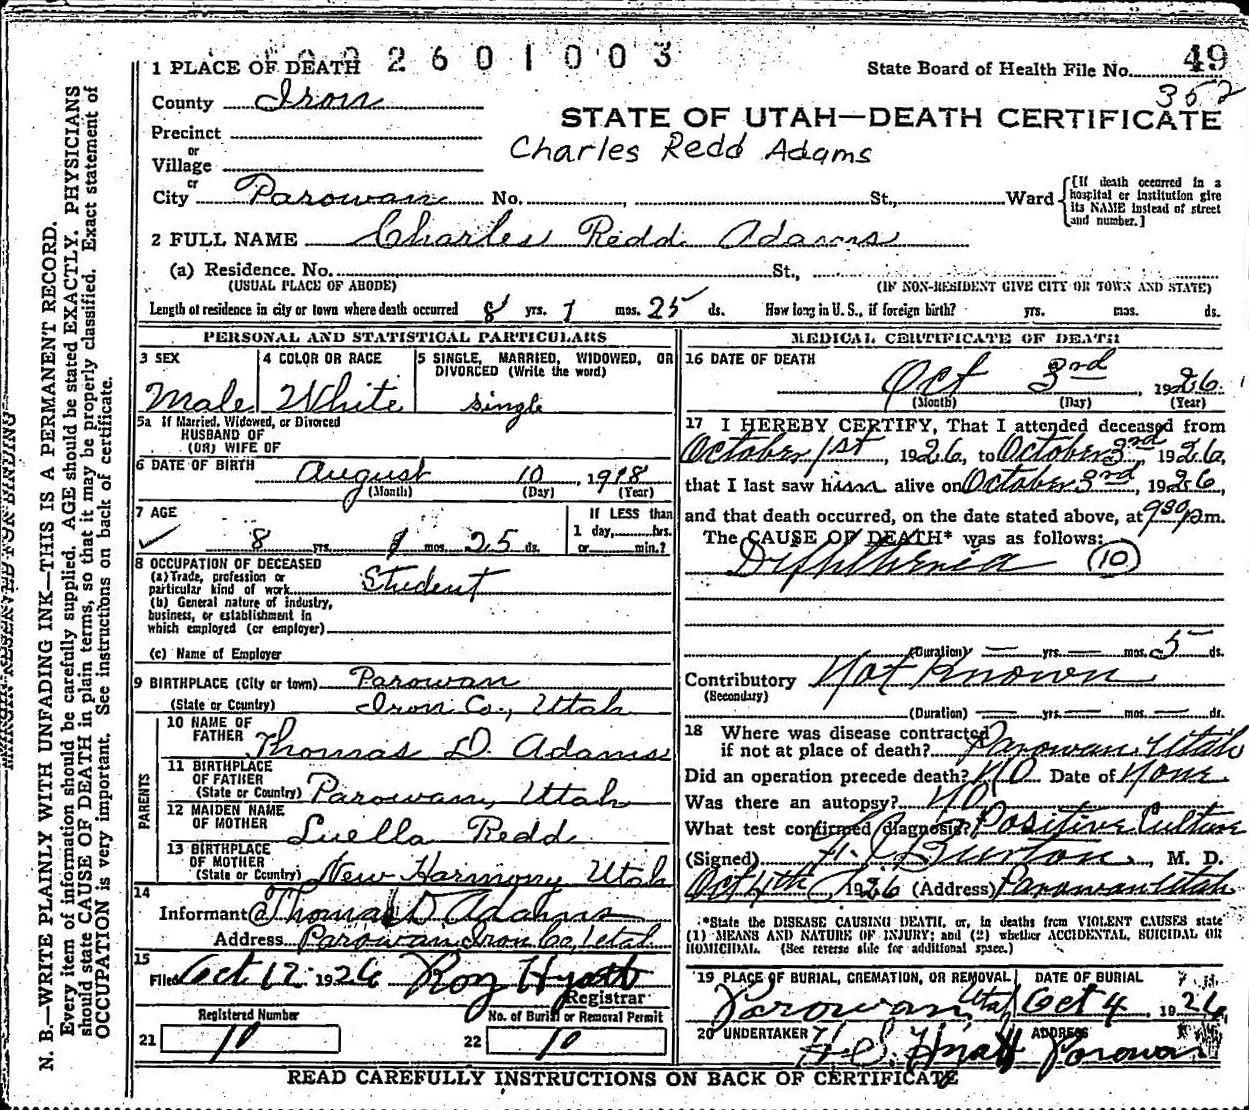 2 6 0 1 0 0 3
49
1 PLACE OF DEATH
State Board of Health File No.
352
County Iron
STATE OF UTAH—DEATH CERTIFICATE
Precinct
Charles Redd Adams
or
Village
or
City Parowan No. , St., Ward
[If death occurred in a
hospital or institution give
its NAME instead of street
and number.]
2 FULL NAME Charles Redd Adams
(a) Residence. No. St.,
(USUAL PLACE OF ABODE) (IF NON-RESIDENT GIVE CITY OR TOWN AND STATE)
Length of residence in city or town where death occurred 8 yrs. 1 mos. 25 ds. How long in U. S., if foreign birth? yrs. mos. ds.
PERSONAL AND STATISTICAL PARTICULARS
3 SEX
Male
4 COLOR OR RACE
White
5 SINGLE, MARRIED, WIDOWED, OR
DIVORCED (Write the word)
single
5a If Married, Widowed, or Divorced
HUSBAND OF
(OR) WIFE OF
6 DATE OF BIRTH August 10, 1918
(Month) (Day) (Year)
7 AGE
8 yrs. 1 mos. 25 ds.
If LESS than
1 day, hrs.
or min.?
8 OCCUPATION OF DECEASED
(a) Trade, profession or
particular kind of work Student
(b) General nature of industry,
business, or establishment in
which employed (or employer)
(c) Name of Employer
9 BIRTHPLACE (City or town) Parowan
(State or Country) Iron Co., Utah
PARENTS
10 NAME OF
FATHER Thomas D. Adams
11 BIRTHPLACE
OF FATHER
(State or Country) Parowan, Utah
12 MAIDEN NAME
OF MOTHER Luella Redd
13 BIRTHPLACE
OF MOTHER
(State or Country) New Harmony Utah
14
Informant Thomas D Adams
Address Parowan Iron Co, Utah
15
Filed Oct 12 1926 Roy Hyatt
Registrar
Registered Number
21 10
No. of Burial or Removal Permit
22 10
MEDICAL CERTIFICATE OF DEATH
16 DATE OF DEATH
Oct 3rd 1926
(Month) (Day) (Year)
17 I HEREBY CERTIFY, That I attended deceased from
October 1st, 1926, to October 3rd 1926,
that I last saw him alive on October 3rd, 1926,
and that death occurred, on the date stated above, at 930 p.m.
The CAUSE OF DEATH* was as follows:
Diphtheria (10)
(Duration) — yrs. — mos. 5 ds.
Contributory Not Known
(Secondary)
(Duration) — yrs. — mos. — ds.
18 Where was disease contracted
if not at place of death? Parowan, Utah
Did an operation precede death? No Date of None
Was there an autopsy? No
What test confirmed diagnosis? Positive Culture
(Signed) Burton, M. D.
Oct 4th, 1926 (Address) Parowan Utah
*State the DISEASE CAUSING DEATH, or, in deaths from VIOLENT CAUSES state
(1) MEANS AND NATURE OF INJURY; and (2) whether ACCIDENTAL, SUICIDAL OR
HOMICIDAL. (See reverse side for additional space.)
19 PLACE OF BURIAL, CREMATION, OR REMOVAL
Parowan Utah
DATE OF BURIAL
Oct 4, 1926
20 UNDERTAKER Hyatt
ADDRESS
Parowan
READ CAREFULLY INSTRUCTIONS ON BACK OF CERTIFICATE
MARGIN RESERVED FOR BINDING
N. B.—WRITE PLAINLY WITH UNFADING INK—THIS IS A PERMANENT RECORD.
Every item of information should be carefully supplied. AGE should be stated EXACTLY. PHYSICIANS
should state CAUSE OF DEATH in plain terms, so that it may be properly classified. Exact statement of
OCCUPATION is very important. See instructions on back of certificate.